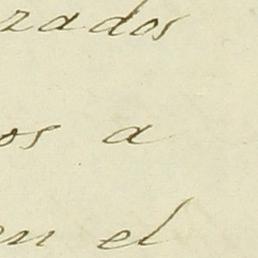 zados
os a
en el